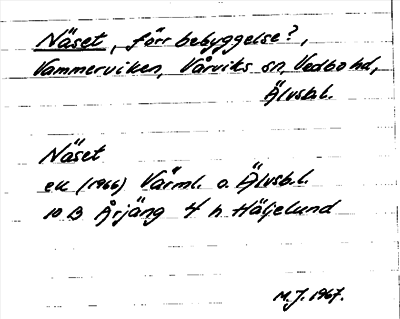 Näset, förr bebyggelse?,
Vammerviken, Vårviks sn, Vedbo hd,
Älvsb.l.
Näset
ek (1966) Värml. o. Älvsb.l.
10 B Årjäng 4 h Häljelund
M.J. 1967.